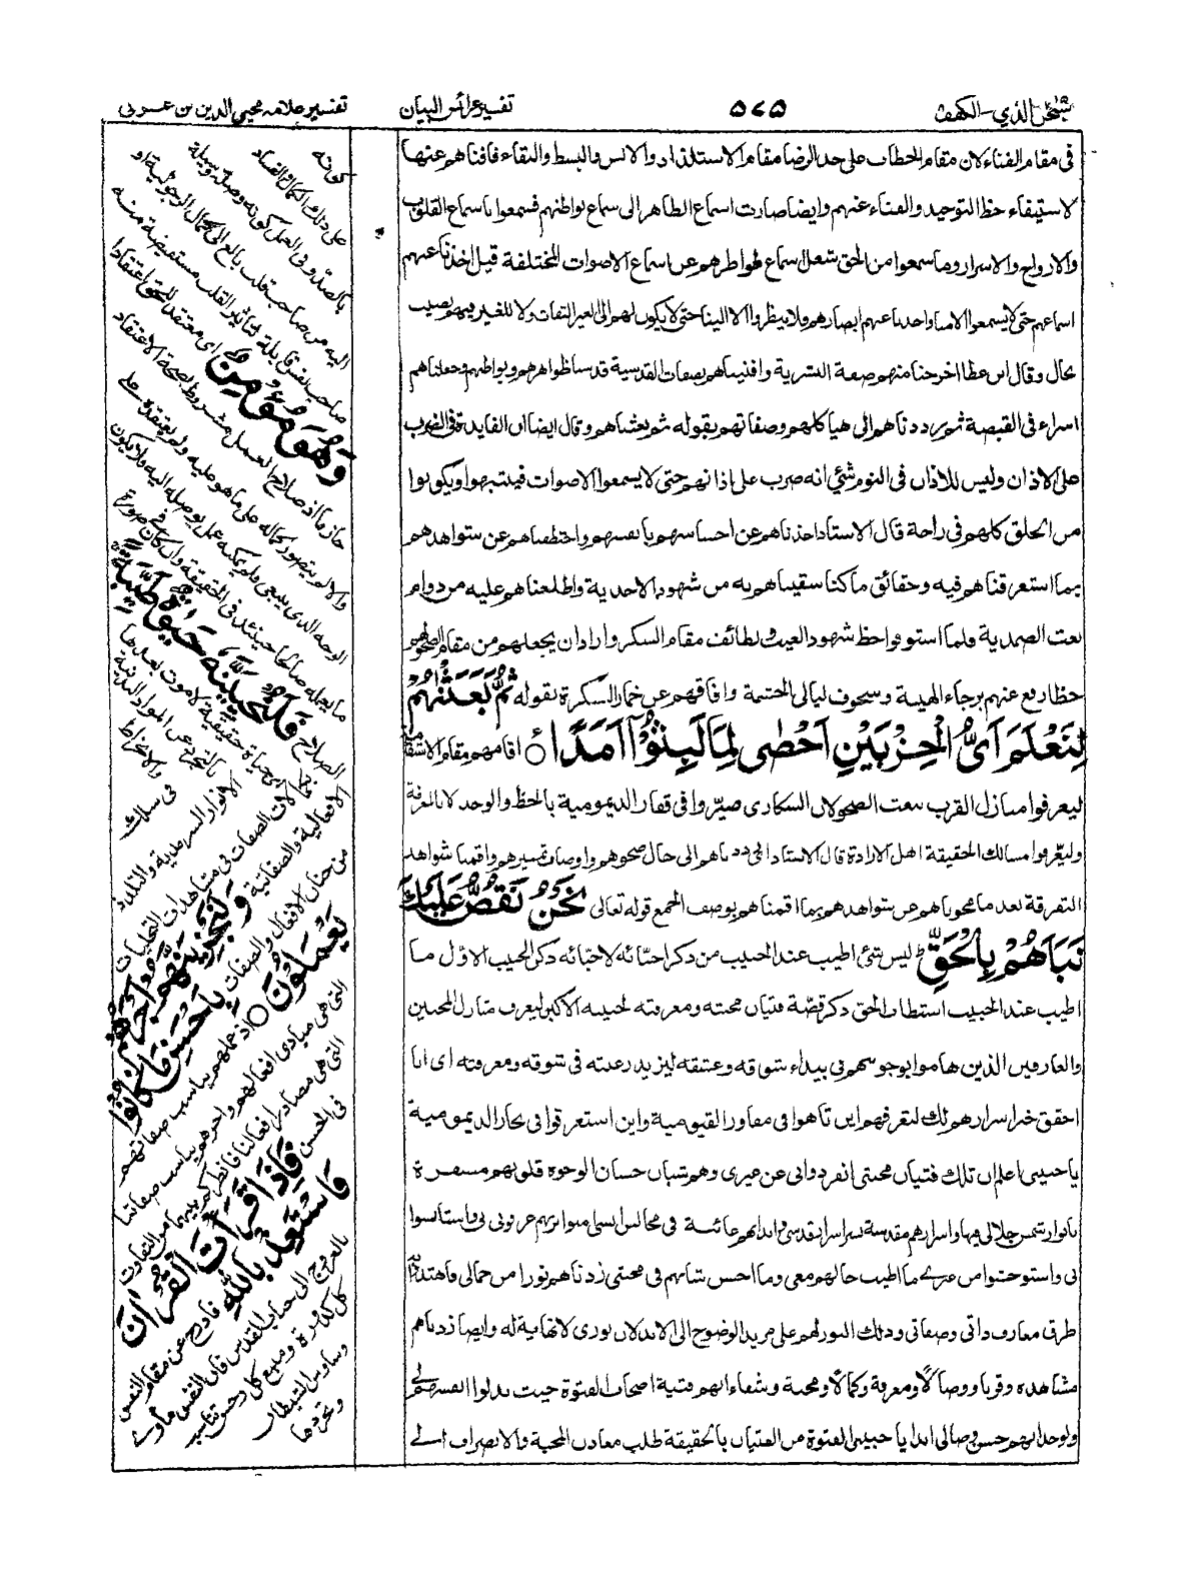 سبحٰن الذي - الكهف
٥٧٥
تفسير عرائس البيان
تفسير علامه محيي الدين بن عربي
في مقام الفناء لان مقام الخطاب على حد الرضا مقام الاستلذاذ والانس والبسط والبقاء فافناهم عنها
لاستيفاء حظ التوحيد والفناء عنهم وايضا صارت اسماع الظاهر الى سماع بواطنهم فسمعوا باسماع القلوب
والارواح والاسرار وما سمعوا من الحق شغل سماع ظواهرهم عن اسماع الاصوات المختلفة قيل اخذنا عنهم
اسماعهم حتى لا يسمعوا الا منا واخذنا عنهم ابصارهم فلا ينظروا الا الينا حتى لا يكون لهم الى الغير التفات ولا للغير فيهم نصيب
بحال وقال ابن عطا اخرجنا منهم صفة البشرية وافنيناهم بصفات القدسية قدسنا ظواهرهم وبواطنهم وجعلناهم
اسراء في القبضة ثم رددناهم الى هياكلهم وصفاتهم بقوله ثم بعثناهم وقال ايضا ان الفايدة في الضرب
على الاذان وليس للاذان في النوم شئ انه ضرب على اذانهم حتى لا يسمعوا الاصوات فينتبهوا ويكونوا
من الخلق كلهم في راحة قال الاستاد اخذناهم عن احساسهم بانفسهم واختطفناهم عن شواهدهم
بما استغرقناهم فيه وحقائق ما كنا سقيناهم به من شهود الاحدية واطلعناهم عليه من دوام
نعت الصمدية فلما استوفوا حظ شهود الغيب ولطائف مقام السكر واراد ان يجعلهم من مقام الصحو لهم
حظا رفع عنهم برجاء الهيبة وسجوف ليالي الحشمة وافاقهم عن خمار السكرة بقوله ثُمَّ بَعَثْنٰهُمْ
لِنَعْلَمَ اَيُّ الْحِزْبَيْنِ اَحْصٰى لِمَا لَبِثُوْٓا اَمَدًا ○ اقامهم مقام الاشفاق
ليعرفوا منازل القرب بنعت الصحو لان السكارى صيروا في قفار الديمومية بالحظ والوجد لا بالمعرفة
وليعرفوا مسالك الحقيقة اهل الارادة قال الاستاد اي رددناهم الى حال صحوهم واوصاف تميزهم واقمنا شواهد
التفرقة بعد ما محوناهم عن شواهدهم بما اقمناهم بوصف الجمع قوله تعالى نَحْنُ نَقُصُّ عَلَيْكَ
نَبَاَهُمْ بِالْحَقِّ ليس شئ اطيب عند الحبيب من ذكر احبائه لاحبائه ذكر الحبيب الاول ما
اطيب عند الحبيب استطاب الحق ذكر قصة فتيان محبته ومعرفته لحبيبه الاكبر ليعرف منازل المحبين
والعارفين الذين هاموا بوجوههم في بيداء شوقه وعشقه ليزيد رغبته في شوقه ومعرفته اى انا
احقق خبر اسرارهم لك لتعرفهم اين تاهوا في مفاوز القيومية واين استغرقوا في بحار الديمومية
يا حبيبي اعلم ان تلك فتيان محبتي انفردوا بي عن غيري وهم شبان حسان الوجوه قلوبهم مسفرة
بانوار شمس جلالي فيها واسرارهم مقدسة بسر اسرار قدسي وابدانهم غائبة في مجالس انسي
بي واستوحشوا من غيرى ما اطيب حالهم معي وما احسن شانهم في محبتي زدناهم نورا من جمالي فاهتدوا
طرق معارف ذاتي وصفاتي وذلك النور لهم على مزيد الوضوح الى الابد لان نوري لا نهاية له وايضا زدناهم
مشاهدة وقربا ووصالا ومعرفة وكمالا ومحبة وشفاء انهم فتية اصحاب الفتوة حيث بذلوا انفسهم لي
ولوجدانهم حسن وصالي ابدا يا حبيبي الفتوة من الفتيان بالحقيقة طلب معادن المحبة والانصراف الى
كونه
على ذلك الكمال والفساد
بالصد وفي العمل كونه وصلة وسيلة
اليه من صاحب قلب بالغ الى كمال الوجولية او
صاحب نفس قابلة لتاثير القلب مستفيضة منه
وَهُوَ مُؤْمِنٌ اى معتقد للحق اعتقادا
جازما اذ صلاح العمل مشروط بصحة الاعتقاد
والا لم يتصور كماله على ما هو عليه ولم يعتقده على
الوجه الذي ينبغي ولم يمكنه عمل يوصله اليه فلا يكون
ما يعمله صالحا حينئذ في الحقيقة وان كان في صورة
الصلاح فَلَنُحْيِيَنَّهٗ حَيٰوةً طَيِّبَةً
اى حياة حقيقية لا موت بعدها
بالتجرد عن المواد البدنية
والانخراط
في سلك
الانوار السرمدية والتلذذ
بكمالات الصفات في مشاهدات التجليات
الافعالية والصفاتية وَلَنَجْزِيَنَّهُمْ اَجْرَهُمْ
من جنات الافعال والصفات بِاَحْسَنِ مَا كَانُوْا
يَعْمَلُوْنَ ○ اذ عملهم يناسب صفاتهم
التي هي مبادي افعالهم واجرهم يناسب صفاتنا
التي هي مصادر افعالنا فانظر كم بينهما من التفاوت
في الحسن فَاِذَا قَرَاْتَ الْقُرْاٰنَ
فَاسْتَعِذْ بِاللّٰهِ فادرج عن مقام النفس
بالعروج الى جناب القدس فان النفس ماوى
كل كدورة ومنبع كل رجس تناسب
وساوس الشيطان
وتجرها